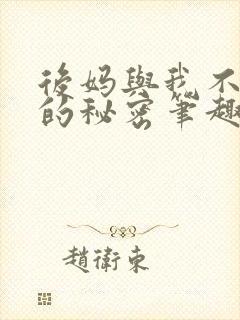 後妈與我不
的秘密筆趣
趙衛東